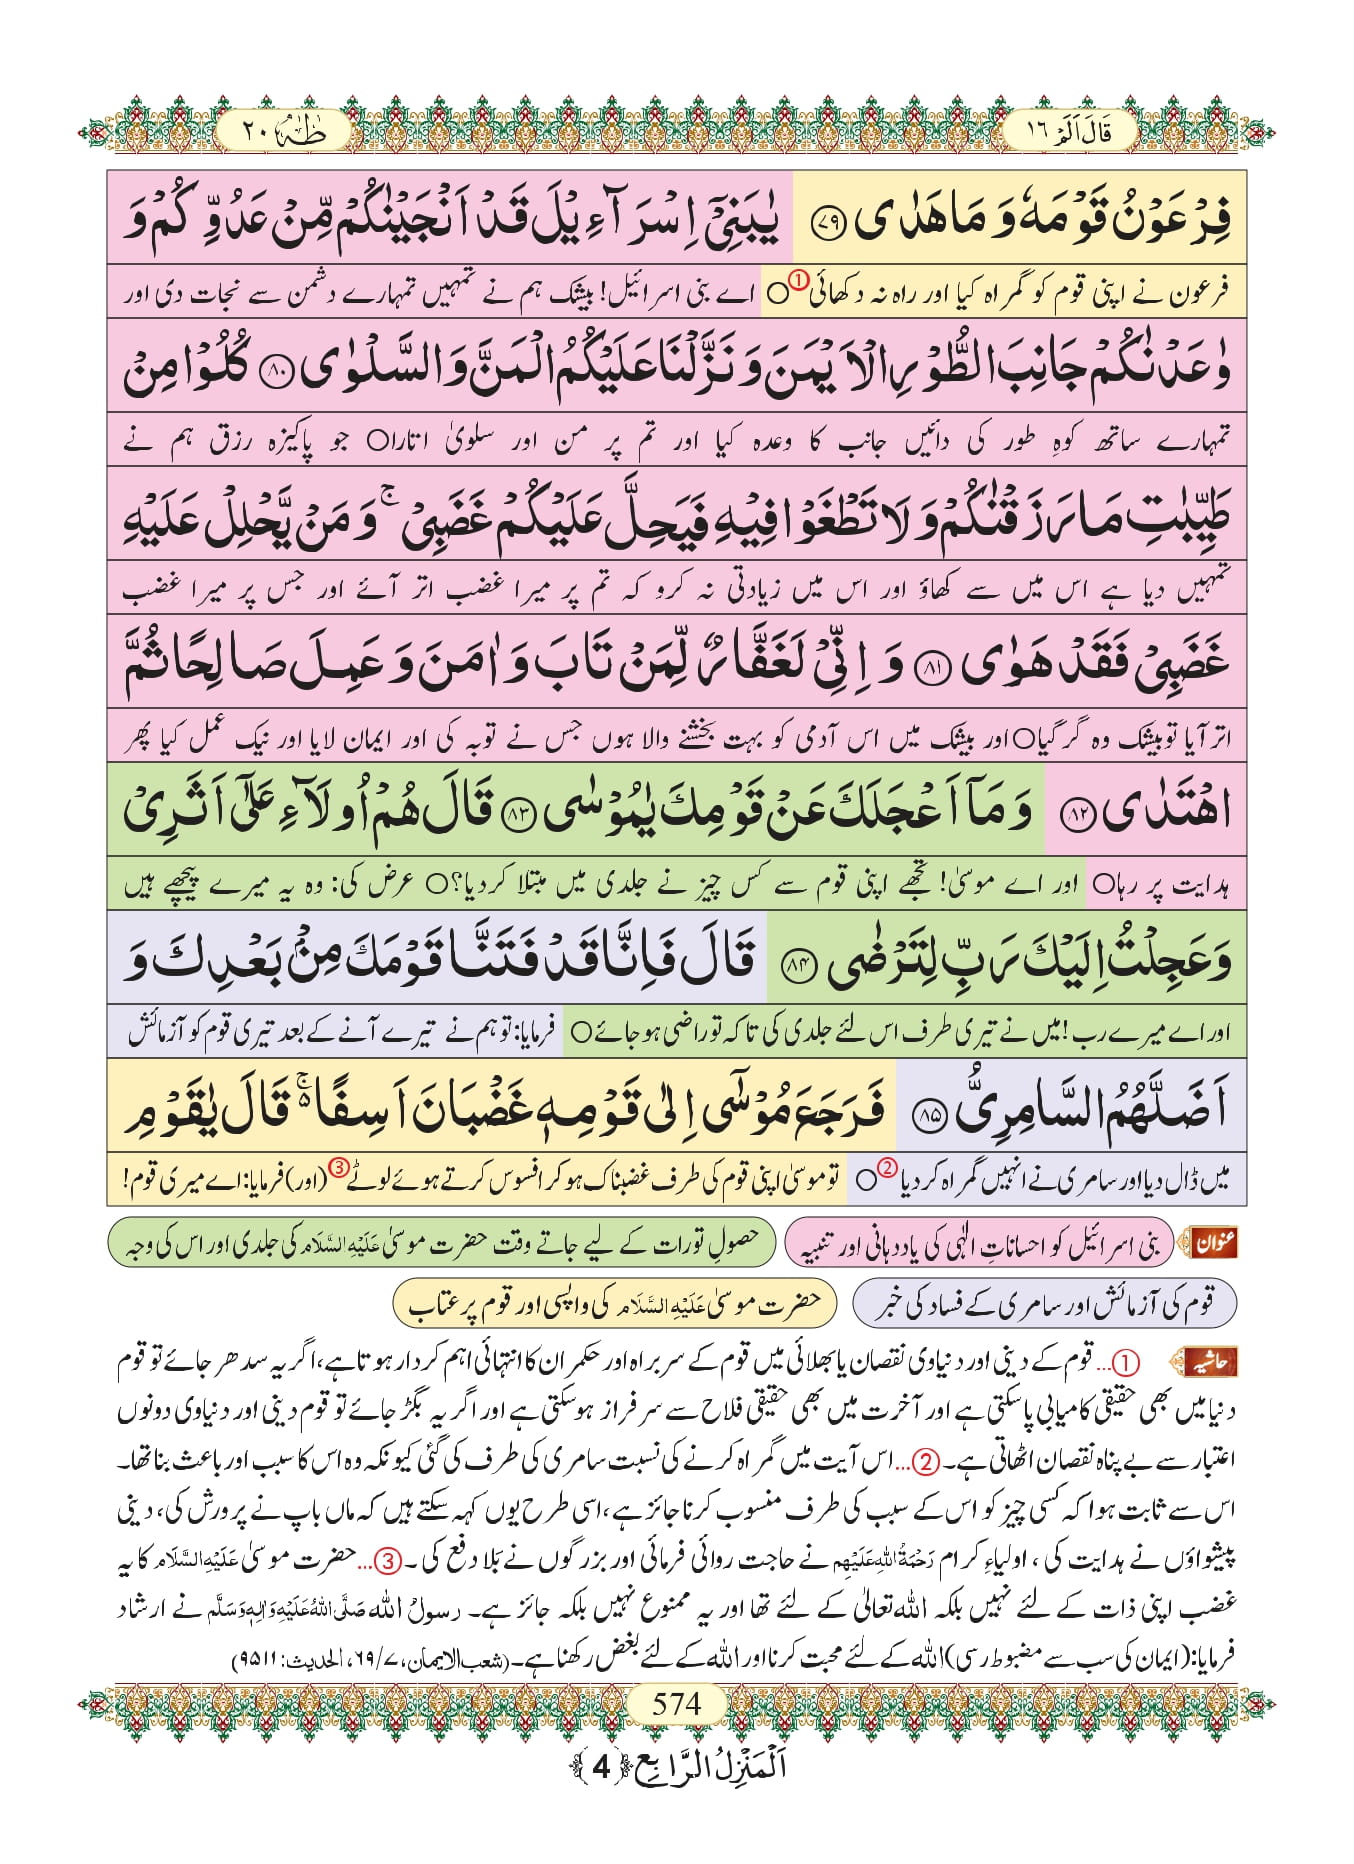 قَالَ اَلَمْ ١٦
طٰهٰ ٢٠
فِرْعَوْنُ قَوْمَهٗ وَ مَا هَدٰى ﴿۷۹﴾ یٰبَنِیْۤ اِسْرَآءِیْلَ قَدْ اَنْجَیْنٰكُمْ مِّنْ عَدُوِّكُمْ وَ
فرعون نے اپنی قوم کو گمراہ کیا اور راہ نہ دکھائی ① ○ اے بنی اسرائیل! بیشک ہم نے تمہیں تمہارے دشمن سے نجات دی اور
وٰعَدْنٰكُمْ جَانِبَ الطُّوْرِ الْاَیْمَنَ وَ نَزَّلْنَا عَلَیْكُمُ الْمَنَّ وَ السَّلْوٰى ﴿۸۰﴾ كُلُوْا مِنْ
تمہارے ساتھ کوہِ طور کی دائیں جانب کا وعدہ کیا اور تم پر من اور سلویٰ اتارا○ جو پاکیزہ رزق ہم نے
طَیِّبٰتِ مَا رَزَقْنٰكُمْ وَ لَا تَطْغَوْا فِیْهِ فَیَحِلَّ عَلَیْكُمْ غَضَبِیْ ۚ وَ مَنْ یَّحْلِلْ عَلَیْهِ
تمہیں دیا ہے اس میں سے کھاؤ اور اس میں زیادتی نہ کرو کہ تم پر میرا غضب اتر آئے اور جس پر میرا غضب
غَضَبِیْ فَقَدْ هَوٰى ﴿۸۱﴾ وَ اِنِّیْ لَغَفَّارٌ لِّمَنْ تَابَ وَ اٰمَنَ وَ عَمِلَ صَالِحًا ثُمَّ
اتر آیا تو بیشک وہ گر گیا○ اور بیشک میں اس آدمی کو بہت بخشنے والا ہوں جس نے توبہ کی اور ایمان لایا اور نیک عمل کیا پھر
اهْتَدٰى ﴿۸۲﴾ وَ مَاۤ اَعْجَلَكَ عَنْ قَوْمِكَ یٰمُوْسٰى ﴿۸۳﴾ قَالَ هُمْ اُولَآءِ عَلٰۤى اَثَرِیْ
ہدایت پر رہا○ اور اے موسیٰ! تجھے اپنی قوم سے کس چیز نے جلدی میں مبتلا کردیا؟○ عرض کی: وہ یہ میرے پیچھے ہیں
وَ عَجِلْتُ اِلَیْكَ رَبِّ لِتَرْضٰى ﴿۸۴﴾ قَالَ فَاِنَّا قَدْ فَتَنَّا قَوْمَكَ مِنْۢ بَعْدِكَ وَ
اور اے میرے رب! میں نے تیری طرف اس لئے جلدی کی تاکہ تو راضی ہو جائے○ فرمایا: تو ہم نے تیرے آنے کے بعد تیری قوم کو آزمائش
اَضَلَّهُمُ السَّامِرِیُّ ﴿۸۵﴾ فَرَجَعَ مُوْسٰۤى اِلٰى قَوْمِهٖ غَضْبَانَ اَسِفًا ۬ۚ قَالَ یٰقَوْمِ
میں ڈال دیا اور سامری نے انہیں گمراہ کر دیا ② ○ تو موسیٰ اپنی قوم کی طرف غضبناک ہو کر افسوس کرتے ہوئے لوٹے ③ (اور) فرمایا: اے میری قوم!
عنوان بنی اسرائیل کو احساناتِ الٰہی کی یاددہانی اور تنبیہ حصولِ تورات کے لیے جاتے وقت حضرت موسیٰ عَلَیْهِ السَّلَام کی جلدی اور اس کی وجہ
قوم کی آزمائش اور سامری کے فساد کی خبر حضرت موسیٰ عَلَیْهِ السَّلَام کی واپسی اور قوم پر عتاب
حاشیہ ①... قوم کے دینی اور دنیاوی نقصان یا بھلائی میں قوم کے سربراہ اور حکمران کا انتہائی اہم کردار ہوتا ہے، اگر یہ سدھر جائے تو قوم
دنیا میں بھی حقیقی کامیابی پاسکتی ہے اور آخرت میں بھی حقیقی فلاح سے سرفراز ہوسکتی ہے اور اگر یہ بگڑ جائے تو قوم دینی اور دنیاوی دونوں
اعتبار سے بے پناہ نقصان اٹھاتی ہے۔ ②... اس آیت میں گمراہ کرنے کی نسبت سامری کی طرف کی گئی کیونکہ وہ اس کا سبب اور باعث بنا تھا۔
اس سے ثابت ہوا کہ کسی چیز کو اس کے سبب کی طرف منسوب کرنا جائز ہے، اسی طرح یوں کہہ سکتے ہیں کہ ماں باپ نے پرورش کی، دینی
پیشواؤں نے ہدایت کی، اولیاءِ کرام رَحْمَةُ اللهِ عَلَیْهِم نے حاجت روائی فرمائی اور بزرگوں نے بَلا دفع کی۔ ③... حضرت موسیٰ عَلَیْهِ السَّلَام کا یہ
غضب اپنی ذات کے لئے نہیں بلکہ اللہ تعالیٰ کے لئے تھا اور یہ ممنوع نہیں بلکہ جائز ہے۔ رسولُ اللہ صَلَّی اللهُ عَلَیْهِ وَاٰلِهٖ وَسَلَّم نے ارشاد
فرمایا: (ایمان کی سب سے مضبوط رسی) اللہ کے لئے محبت کرنا اور اللہ کے لئے بغض رکھنا ہے۔ (شعب الایمان، ۷/۶۹، الحدیث: ۹۵۱۱)
574
اَلْمَنْزِلُ الرَّابِع ﴿4﴾